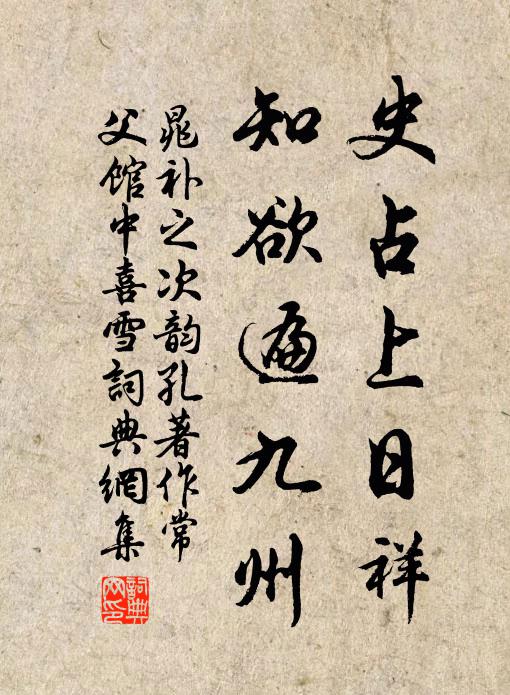 史占上日祥
知欲遍九州
晁补之次韵孔著作常
父馆中喜雪詞典網集
詞典網印